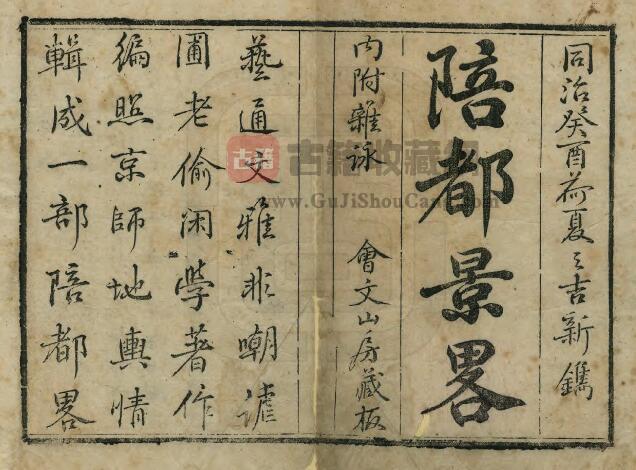 同治癸酉荷夏之吉新鐫
陪都景畧
內附雜詠 會文山房藏板
藝通文雅非嘲謔
圃老偷闲學著作
編照京師地輿情
輯成一部陪都畧
古籍 古籍收藏網
www.GuJiShouCang.com